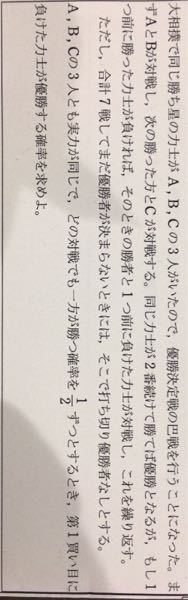 大相撲で同じ勝ち星の力士が A，B，C の 3 人がいたので，優勝決定戦の巴戦を行うことになった。ま
ず A と B が対戦し，次の勝った方と C が対戦する。同じ力士が 2 番続けて勝てば優勝となるが，もし 1
つ前に勝った力士が負ければ，そのときの勝者と 1 つ前に負けた力士が対戦し，これを繰り返す。
ただし，合計 7 戦してまだ優勝者が決まらないときには，そこで打ち切り優勝者なしとする。
A，B，C の 3 人とも実力が同じで，どの対戦でも一方が勝つ確率を 1/2 ずつとするとき，第 1 買い目に
負けた力士が優勝する確率を求めよ。